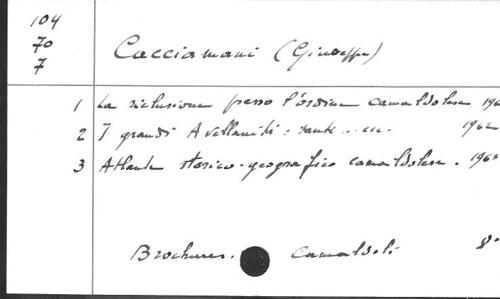 104
70
7
Cacciamani (Giuseppe)
1 La reclusione presso l'ordine camaldolese 196
2 I grandi Avellaniti: santi ... ecc. 196
3 Atlante storico-geografico camaldolese. 1963
Brochures. Camaldoli 8°